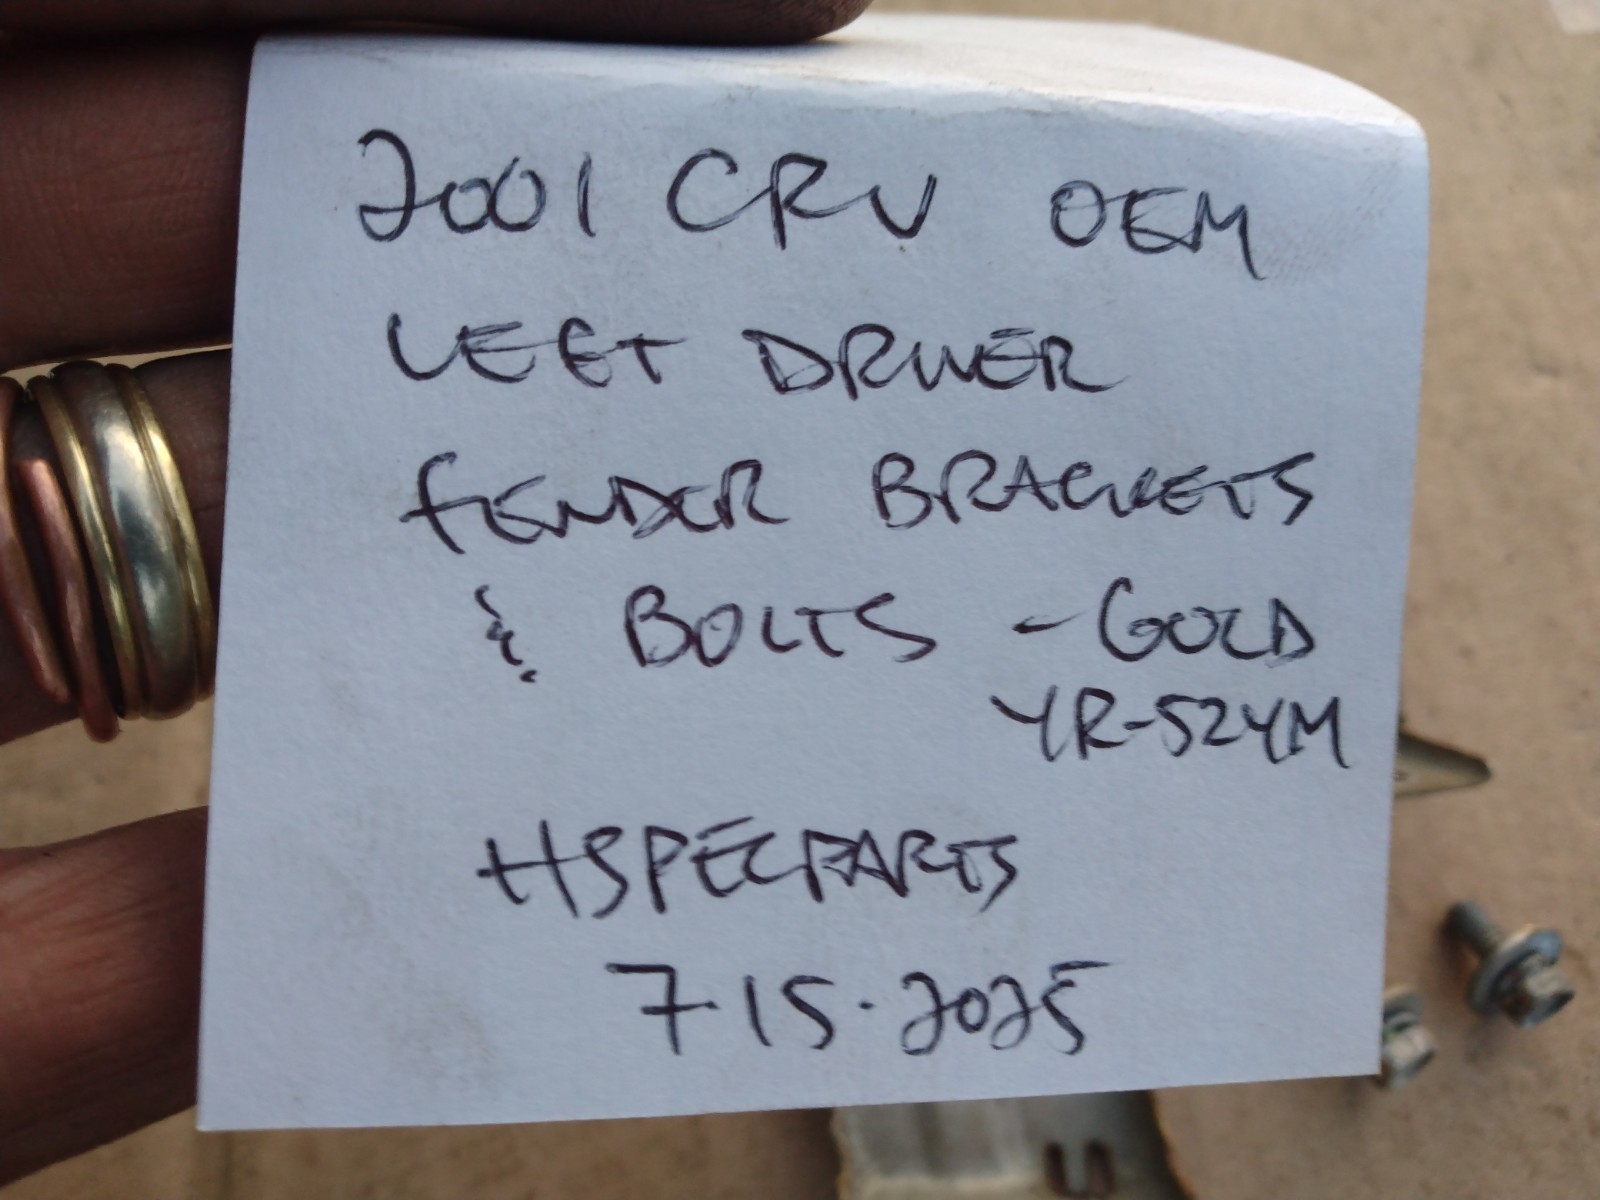 2001 CRV OEM
LEFT DRIVER
FENDER BRACKETS
& BOLTS - GOLD
YR-524M
HSPECPARTS
7-15-2025